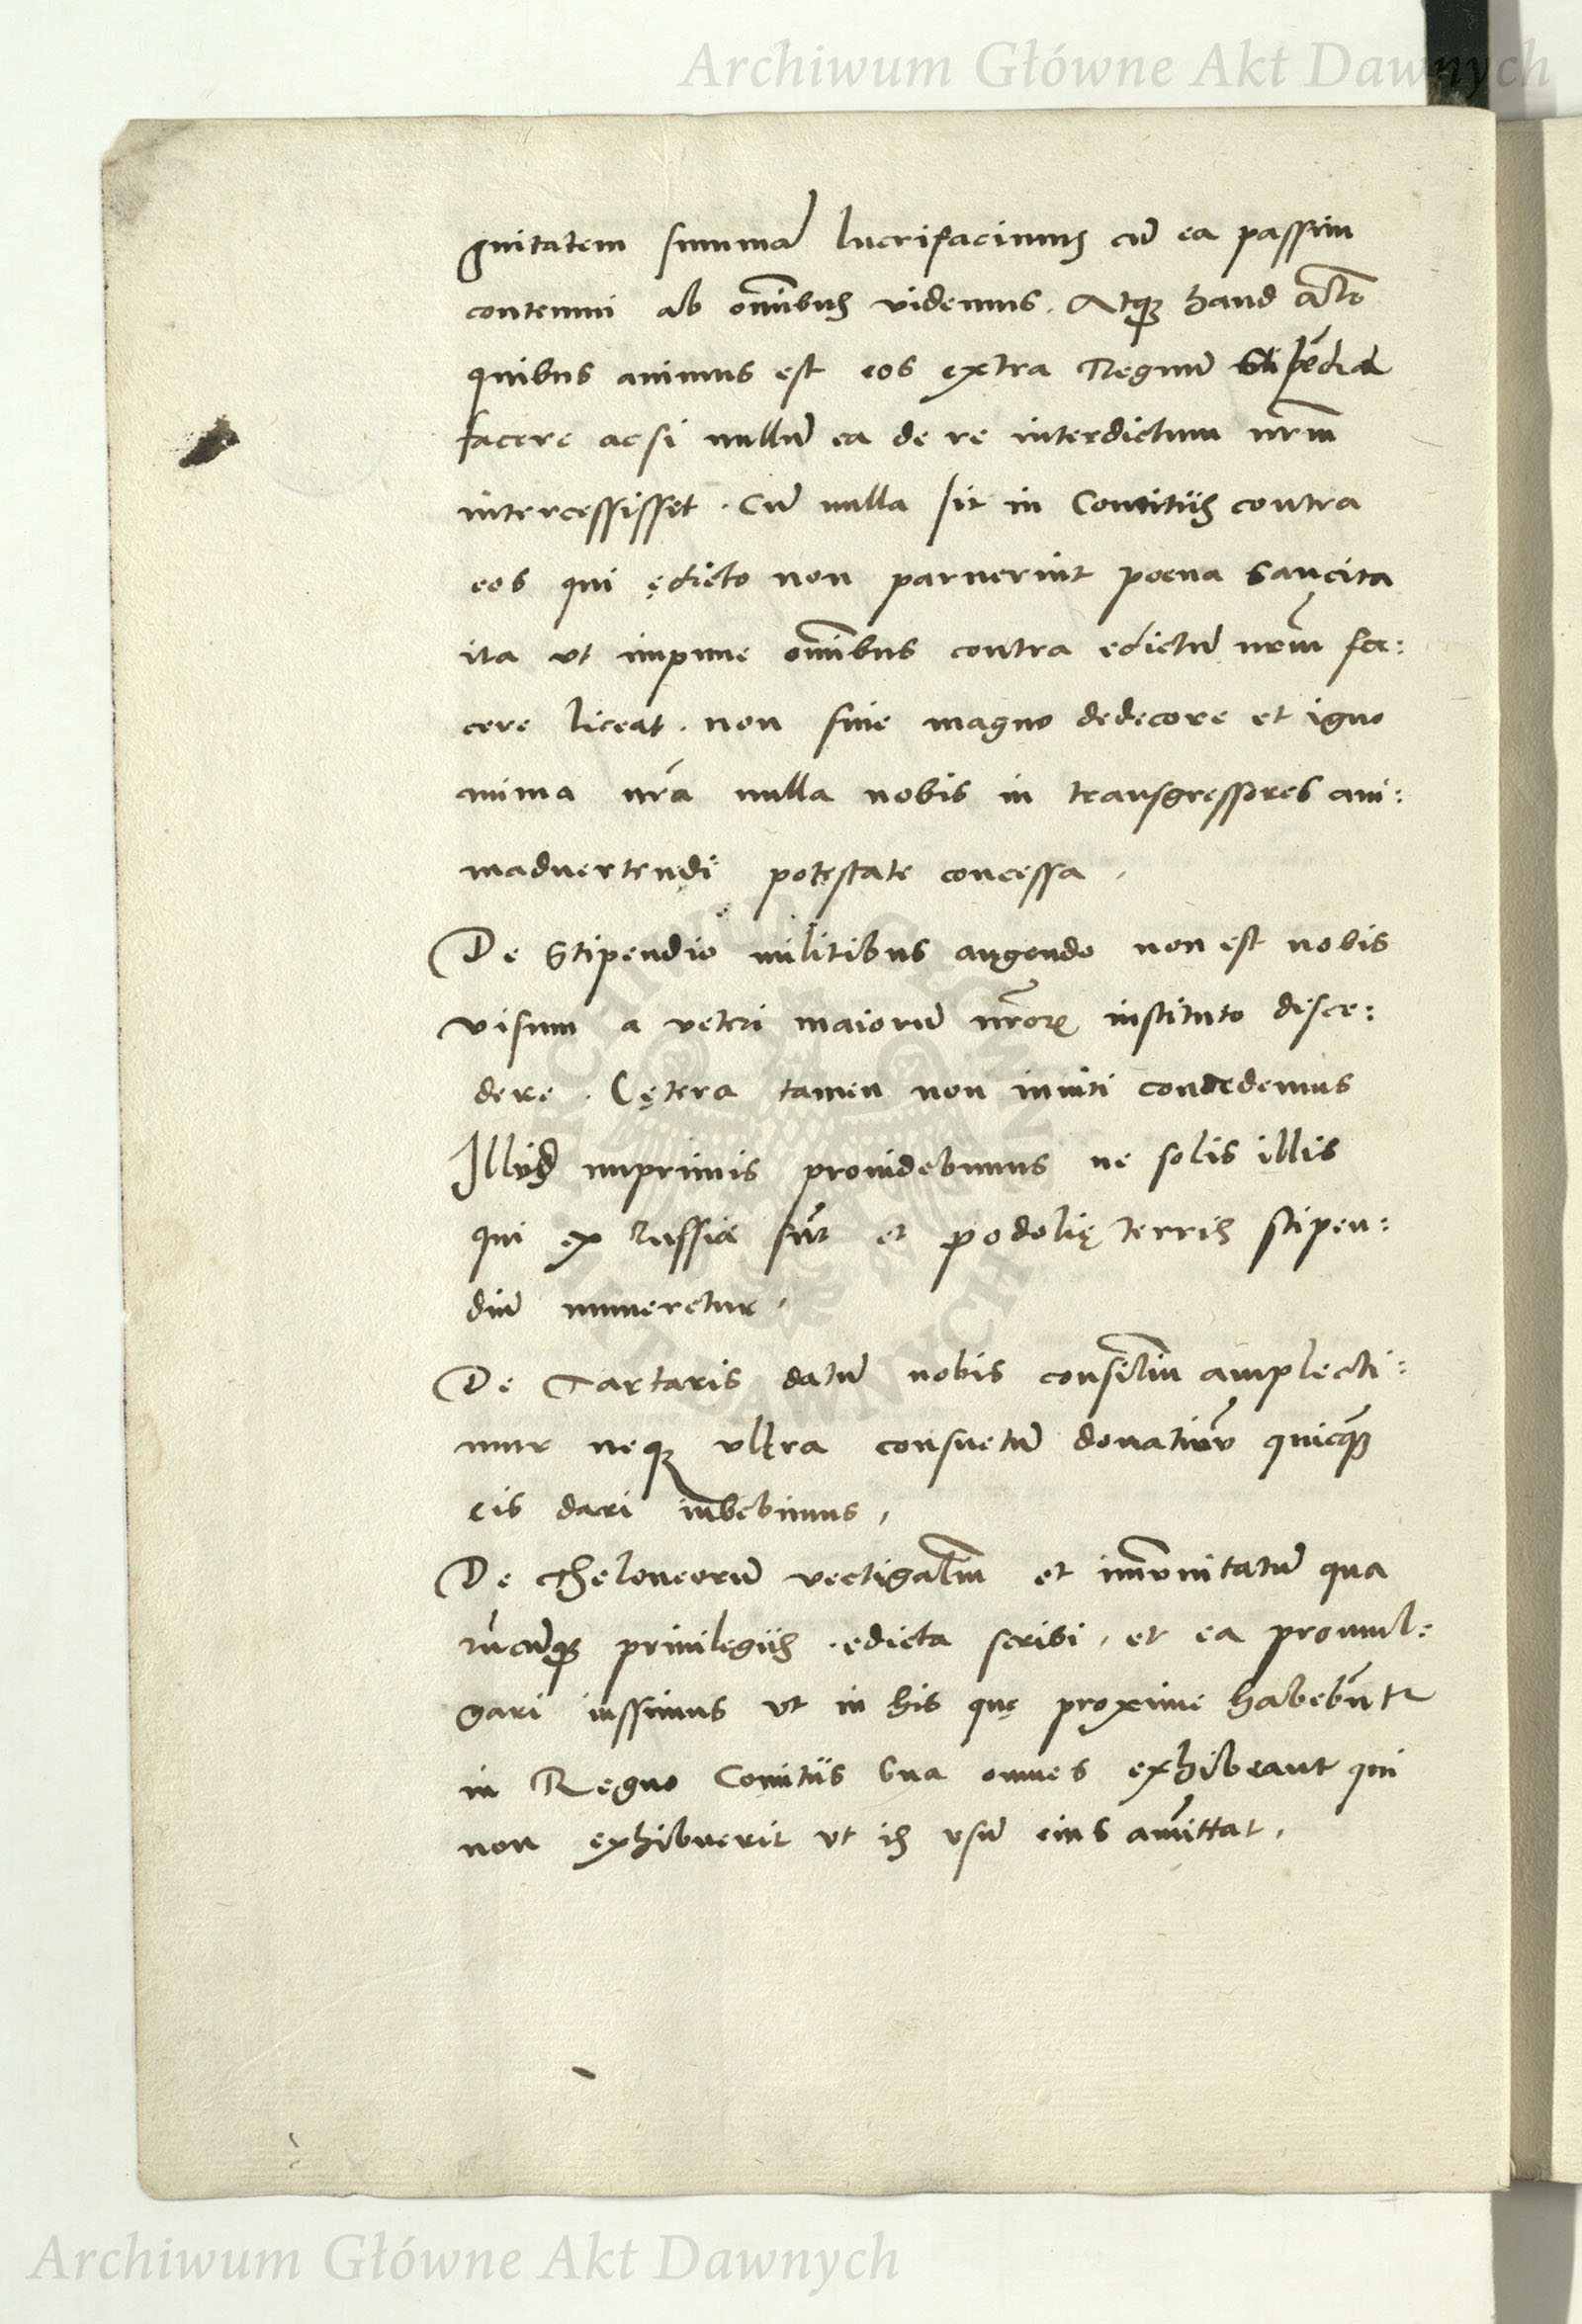 Archiwum Główne Akt Dawnych
gnitatem summā lucrifacimus cū ea passim
contemni ab om̄ibus videmus. Atq₃ haud
quibus animus est eos extra Regnū stipēdia
facere acsi nullū ea de re interdictum nr̄m
intercessisset. Cū nulla sit in Comitiis contra
eos qui ędicto non paruerint poena sancita
ita vt impune om̄ibus contra edictū nr̄m fa:
cere liceat. non sine magno dedecore et igno
minia nr̄a nulla nobis in transgressores ani:
maduertendi potestate concessa.
De Stipendio militibus augendo non est nobis
visum a veteri maiorū nr̄oꝝ instituto disce:
dere. Cętera tamen non inviti concedemus
Illud inprimis prouidebimus ne solis illis
qui ex russiae sūt et podolię terris stipen:
diū numeretur.
De Tartaris datū nobis consiliū amplecti:
mur neq₃ vltra consuetū donatiuū quicq̄₃
eis dari iubebimus.
De theloneorū vectigaliū et imūnitatū qua
rūcūq₃ priuilegiis edicta scribi, et ea promul:
gari iussimus vt in his quę proxime habebūtr
in Regno Comitiis sua omnes exhibeant qui
non exhibuerit vt is vsū eius amittat.
Archiwum Główne Akt Dawnych